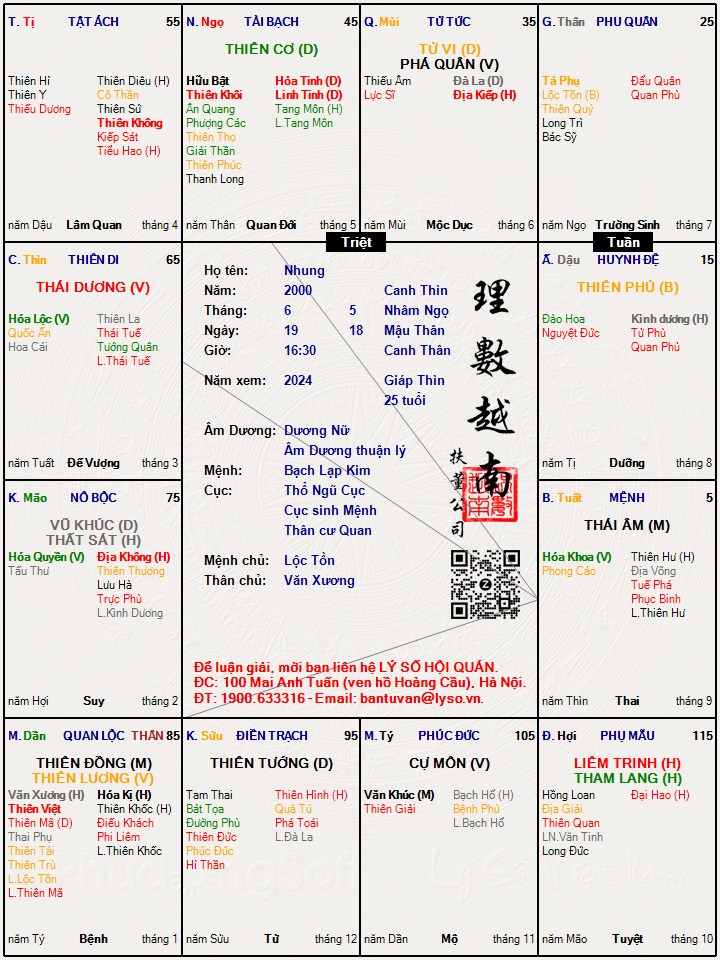 T. Tị TẬT ÁCH 55
Thiên Hỉ
Thiên Y
Thiếu Dương
Thiên Diêu (H)
Cô Thần
Thiên Sứ
Thiên Không
Kiếp Sát
Tiểu Hao (H)
năm Dậu Lâm Quan tháng 4
N. Ngọ TÀI BẠCH 45
THIÊN CƠ (D)
Hữu Bật
Thiên Khôi
Ân Quang
Phượng Các
Thiên Thọ
Giải Thần
Thiên Phúc
Thanh Long
Hỏa Tinh (D)
Linh Tinh (D)
Tang Môn (H)
L.Tang Môn
năm Thân Quan Đới tháng 5
Q. Mùi TỬ TỨC 35
TỬ VI (D)
PHÁ QUÂN (V)
Thiếu Âm
Lực Sĩ
Đà La (D)
Địa Kiếp (H)
năm Mùi Mộc Dục tháng 6
G. Thân PHU QUÂN 25
Tả Phụ
Lộc Tồn (B)
Thiên Quý
Long Trì
Bác Sỹ
Đẩu Quân
Quan Phủ
năm Ngọ Trường Sinh tháng 7
Triệt
Tuần
C. Thìn THIÊN DI 65
THÁI DƯƠNG (V)
Hóa Lộc (V)
Quốc Ấn
Hoa Cái
Thiên La
Thái Tuế
Tướng Quân
L.Thái Tuế
năm Tuất Đế Vượng tháng 3
Họ tên: Nhung
Năm: 2000 Canh Thìn
Tháng: 6 5 Nhâm Ngọ
Ngày: 19 18 Mậu Thân
Giờ: 16:30 Canh Thân
Năm xem: 2024 Giáp Thìn
25 tuổi
Âm Dương: Dương Nữ
Âm Dương thuận lý
Mệnh: Bạch Lạp Kim
Cục: Thổ Ngũ Cục
Cục sinh Mệnh
Thân cư Quan
Mệnh chủ: Lộc Tồn
Thân chủ: Văn Xương
理數越南
扶董公司
Để luận giải, mời bạn liên hệ LÝ SỐ HỘI QUÁN.
ĐC: 100 Mai Anh Tuấn (ven hồ Hoàng Cầu), Hà Nội.
ĐT: 1900.633316 - Email: bantuvan@lyso.vn.
Ấ. Dậu HUYNH ĐỆ 15
THIÊN PHỦ (B)
Đào Hoa
Nguyệt Đức
Kình dương (H)
Tử Phù
Quan Phủ
năm Tị Dưỡng tháng 8
K. Mão NÔ BỘC 75
VŨ KHÚC (D)
THẤT SÁT (H)
Hóa Quyền (V)
Tấu Thư
Địa Không (H)
Thiên Thương
Lưu Hà
Trực Phù
L.Kình Dương
năm Hợi Suy tháng 2
B. Tuất MỆNH 5
THÁI ÂM (M)
Hóa Khoa (V)
Phong Cáo
Thiên Hư (H)
Địa Võng
Tuế Phá
Phục Binh
L.Thiên Hư
năm Thìn Thai tháng 9
M. Dần QUAN LỘC THÂN 85
THIÊN ĐỒNG (M)
THIÊN LƯƠNG (V)
Văn Xương (H)
Thiên Việt
Thiên Mã (D)
Thai Phụ
Thiên Tài
Thiên Trù
L.Lộc Tồn
L.Thiên Mã
Hóa Kị (H)
Thiên Khốc (H)
Điếu Khách
Phi Liêm
L.Thiên Khốc
năm Tý Bệnh tháng 1
K. Sửu ĐIỀN TRẠCH 95
THIÊN TƯỚNG (D)
Tam Thai
Bát Tọa
Đường Phù
Thiên Đức
Phúc Đức
Hỉ Thần
Thiên Hình (H)
Quả Tú
Phá Toái
L.Đà La
năm Sửu Tử tháng 12
M. Tý PHÚC ĐỨC 105
CỰ MÔN (V)
Văn Khúc (M)
Thiên Giải
Bạch Hổ (H)
Bệnh Phù
L.Bạch Hổ
năm Dần Mộ tháng 11
Đ. Hợi PHỤ MẪU 115
LIÊM TRINH (H)
THAM LANG (H)
Hồng Loan
Địa Giải
Thiên Quan
LN.Văn Tinh
Long Đức
Đại Hao (H)
năm Mão Tuyệt tháng 10